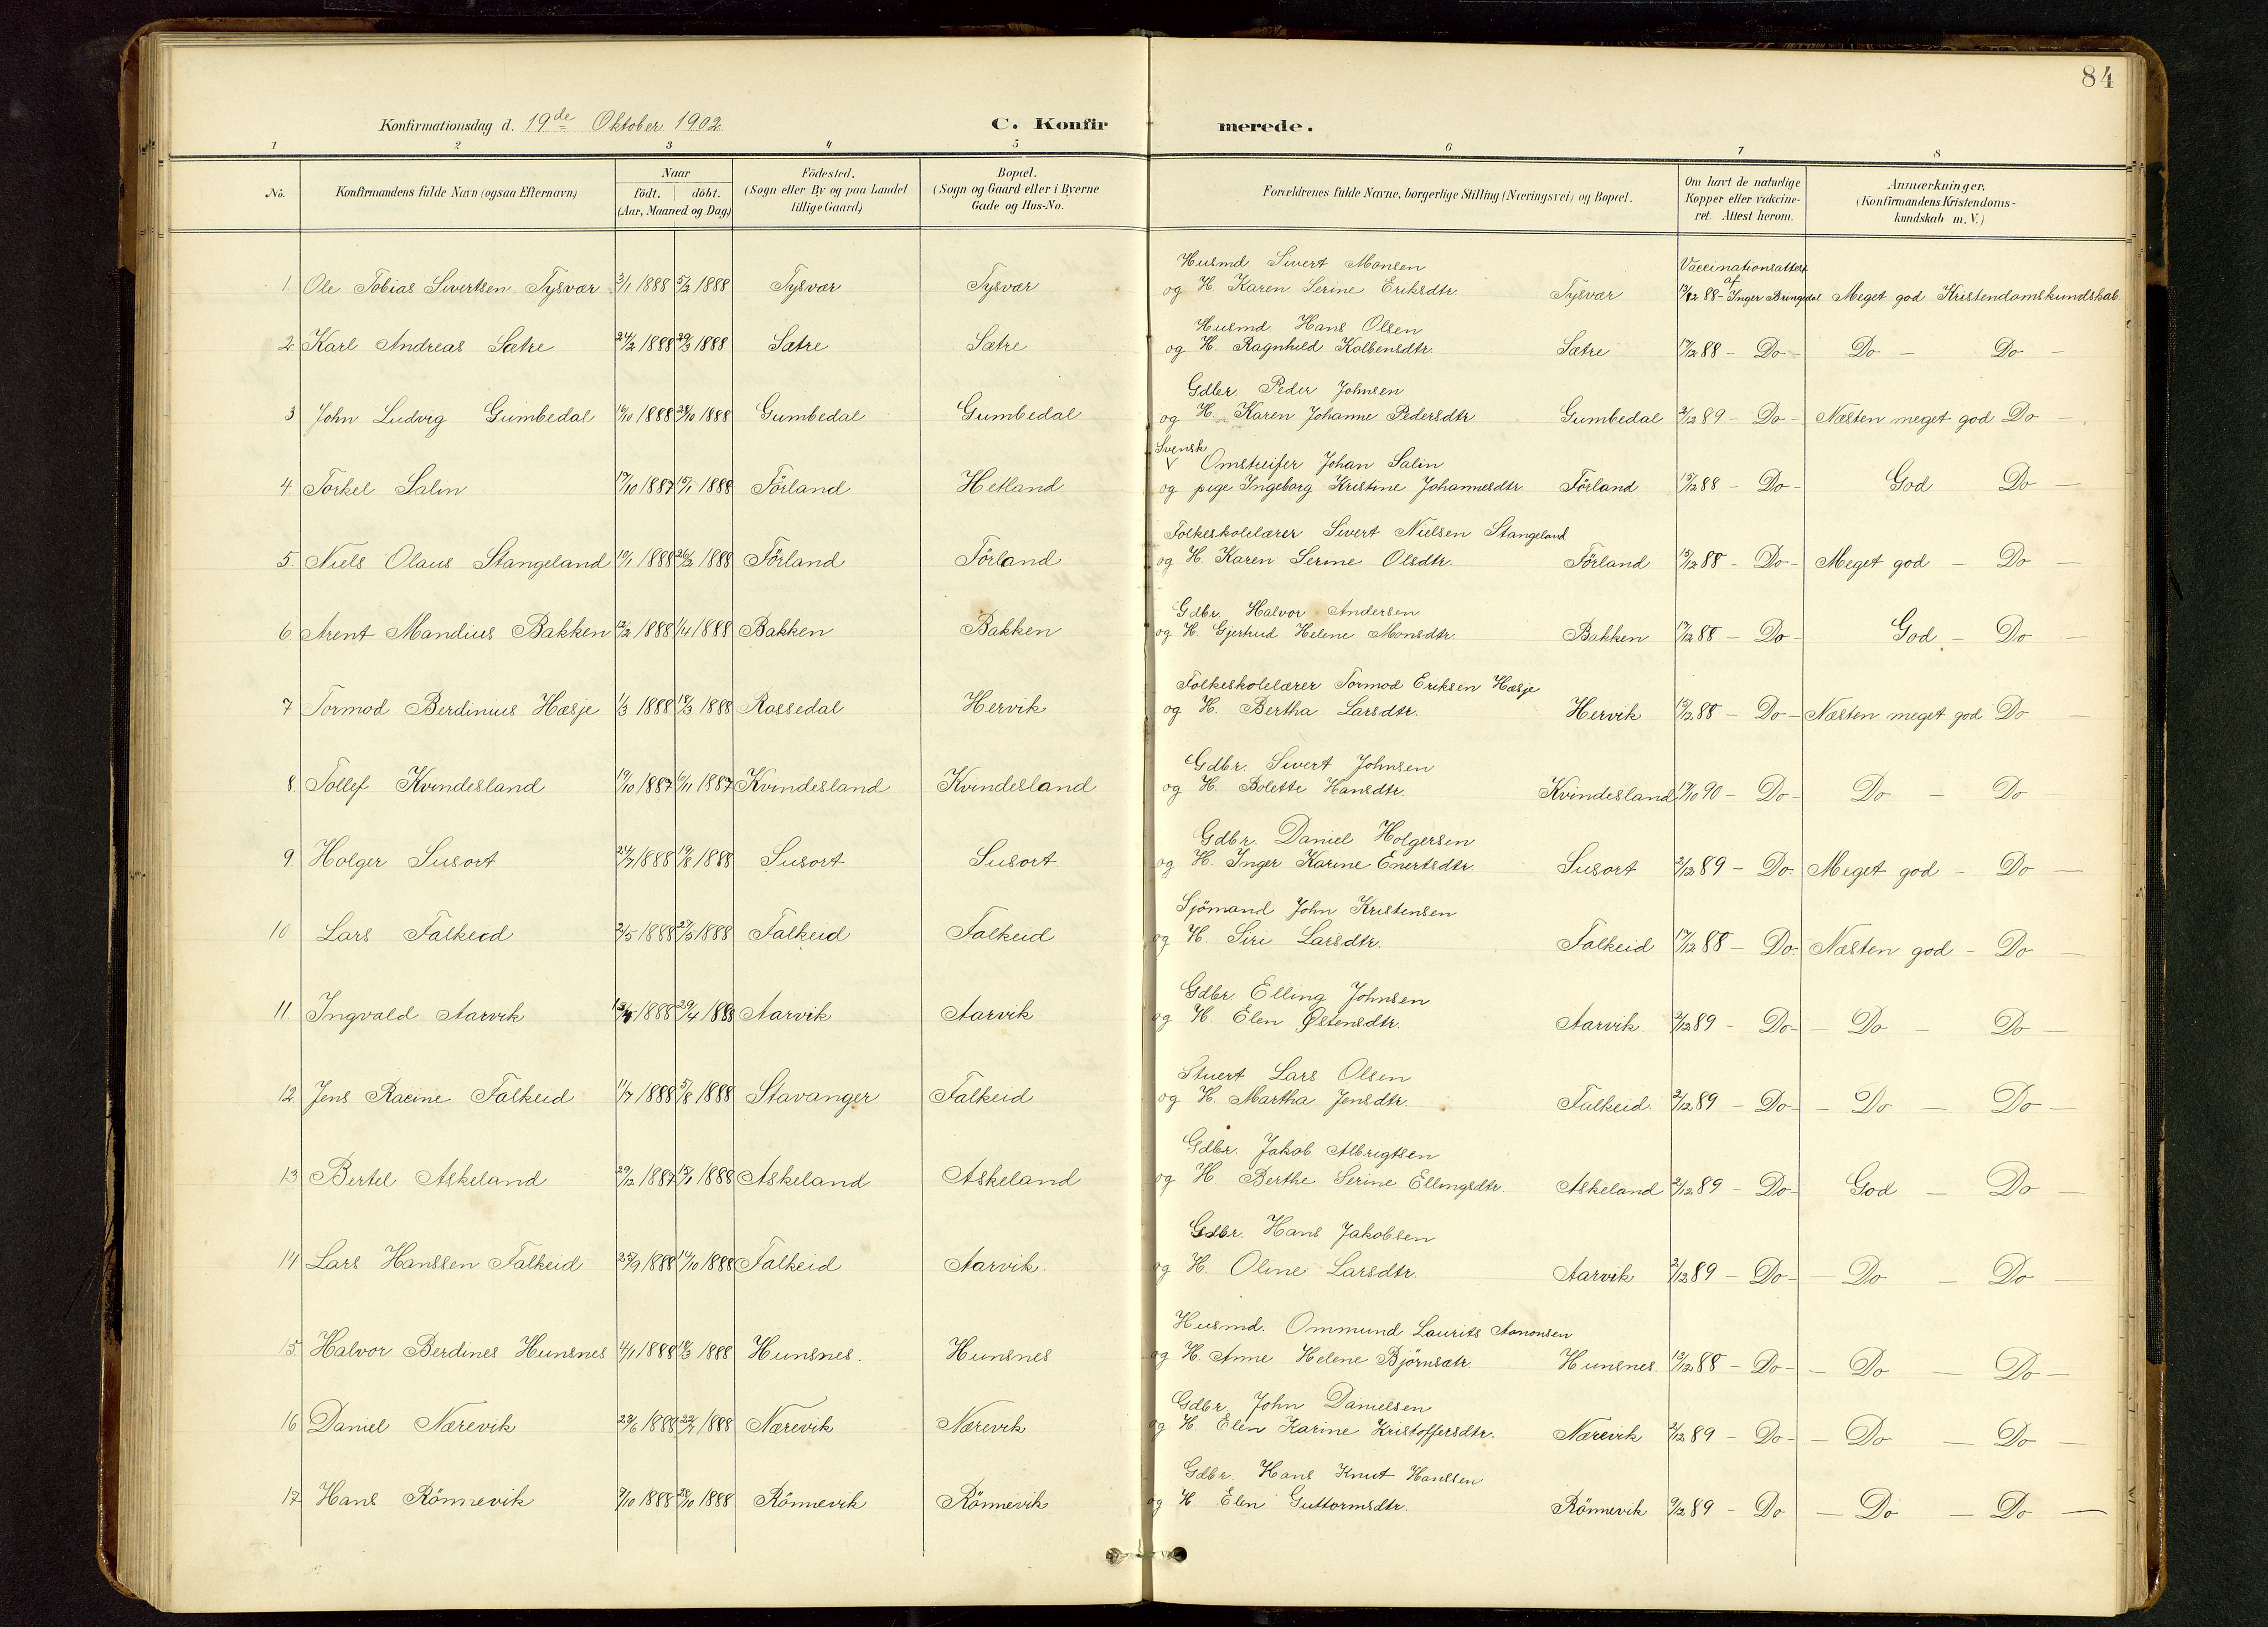 84
Konfirmationsdag d. 19de Oktober 1902.
C. Konfir merede.
1 2 3 4 5 6 7 8
No. Konfirmandens fulde Navn (ogsaa Efternavn) Naar födt. döbt. (Aar, Maaned og Dag) Födested. (Sogn eller By og paa Landet tillige Gaard) Bopæl. (Sogn og Gaard eller i Byerne Gade og Hus-No. Forældrenes fulde Navne, borgerlige Stilling (Næringsvei) og Bopæl. Om havt de naturlige Kopper eller vakcineret. Attest herom. Anmærkninger. (Konfirmandens Kristendomskundskab m. V.)
Husmd. Sivert Monsen Vaccinationsattest af
1. Ole Tobias Sivertsen Tysvær 3/1 1888 5/2 1888 Tysvær Tysvær og H. Karen Serine Eriksdtr. Tysvær 88 - Inger Bringedal Meget god Kristendomskundskab.
Husmd. Hans Olsen
2. Karl Andreas Sætre 24/2 1888 29/3 1888 Sætre Sætre og H. Ragnhild Kolbensdtr. Sætre 17/12 88 - Do - Do - Do -
Gdbr. Peder Johnsen
3 John Ludvig Gumbedal 16/10 1888 28/10 1888 Gumbedal Gumbedal og H. Karen Johanne Pedersdtr. Gumbedal 2/12 89 - Do - Næsten meget god Do -
Svensk
v Omstreifer Johan Salin
4. Torkel Salin 17/10 1887 15/1 1888 Förland Hetland og pige Ingeborg Kristine Johannesdtr. Förland 88 - Do - God Do -
Folkeskolelærer Sivert Nielsen Stangeland
5. Niels Olaus Stangeland 10/1 1888 26/2 1888 Förland Förland og H. Karen Serine Olsdtr. Förland 88 - Do - Meget god - Do -
Gdbr. Halvor Andersen
6 Arent Mandius Bakken 12/2 1888 1/4 1888 Bakken Bakken og H. Gjertrud Helene Monsdtr. Bakken 17/12 88 - Do - God - Do -
Folkeskolelærer Tormod Eriksen Hæsje
7 Tormod Berdinius Hæsje 1/3 1888 18/3 1888 Rossedal Hervik og H. Bertha Larsdtr. Hervik 88 - Do - Næsten meget god Do -
Gdbr. Sivert Johnsen
8. Tollef Kvindesland 19/10 1887 6/11 1887 Kvindesland Kvindesland og H. Bolette Hansdtr. Kvindesland 17/10 90 - Do - Do - Do
Gdbr. Daniel Holgersen
9. Holger Susort 24/7 1888 19/8 1888 Susort Susort og H. Inger Karine Enertsdtr. Susort 2/12 89 - Do. Meget god - Do -
Sjömand John Kristensen
10 Lars Falkeid 2/5 1888 27/5 1888 Falkeid Falkeid og H. Siri Larsdtr. Falkeid 17/12 88 - Do. Næsten god - Do -
Gdbr. Elling Johnsen
11. Ingvald Aarvik 1888 29/4 1888 Aarvik Aarvik og H. Elen Østensdtr. Aarvik 2/12 89 - Do - - Do - Do -
Stuert Lars Olsen
12. Jens Racine Falkeid 11/7 1888 5/8 1888 Stavanger Falkeid og H. Martha Jensdtr. Falkeid. 2/12 89 - Do - - Do - Do -
Gdbr. Jakob Albrigtsen
13 Bertel Askeland 29/12 1887 15/1 1888 Askeland Askeland og H Berthe Serine Ellingsdtr. Askeland 2/12 89 - Do - God - Do -
Gdbr. Hans Jakobsen
14 Lars Hanssen Falkeid 25/9 1888 14/10 1888 Falkeid Aarvik. og H. Oline Larsdtr. Aarvik 2/12 89 - Do - - Do - Do -
Husmd. Ommund Laurits Aanonsen
15. Halvor Berdines Hunsnes 4/1 1888 18/3 1888 Hunsnes. Hunsnes og H. Anne Helene Björnsdtr Hunsnes. 13/12 88 - Do - - Do - Do -
Gdbr. John Danielsen
16 Daniel Nærevik 22/6 1888 22/7 1888 Nærevik Nærevik og H. Elen Karine Kristoffersdtr. Nærevik 2/12 89 - Do - - Do - Do -
Gdbr. Hans Knut Hanssen
17 Hans Rönnevik 9/10 1888 28/10 1888 Rönnevik Rönnevik og H. Elen Guttormsdtr. Rönnevik 9/12 89 - Do - Do - Do -